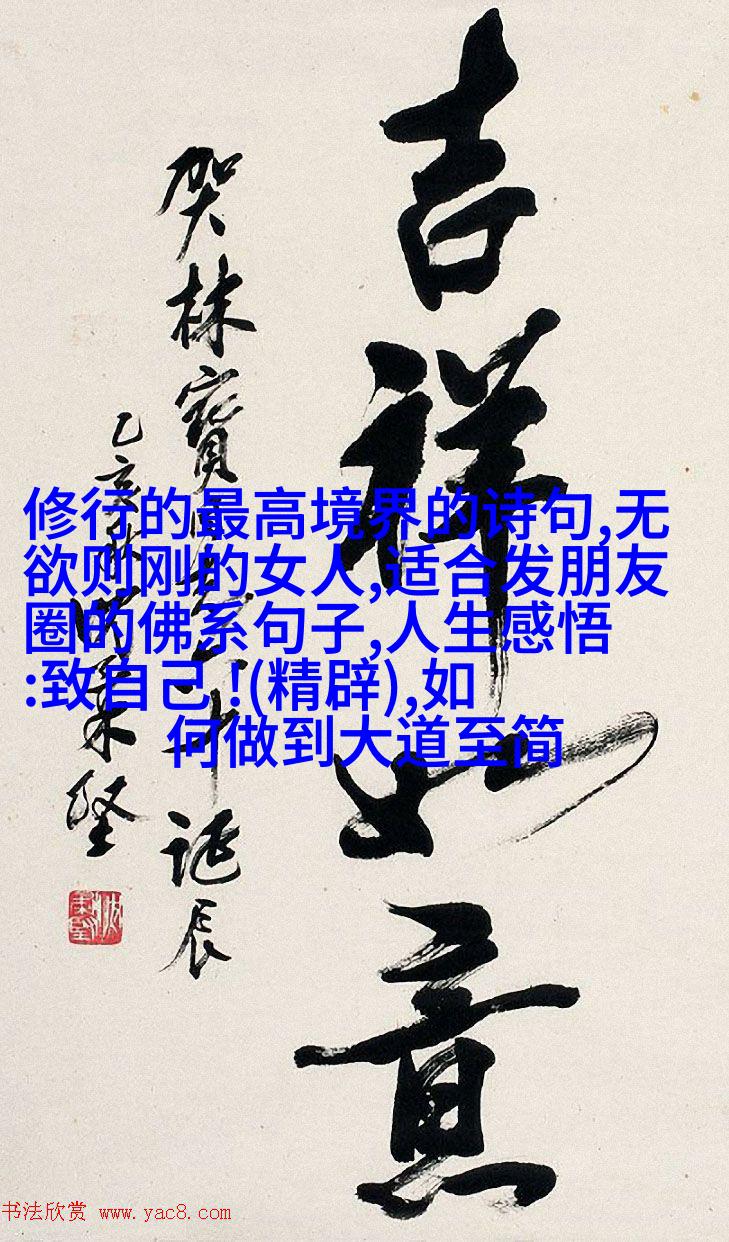 吉祥如意
贺林宝
乙亥
诞辰
修行的最高境界的诗句,无
欲则刚的女人,适合发朋友
圈的佛系句子,人生感悟
:致自己!(精辟),如
何做到大道至简
书法欣赏 www.yac8.com